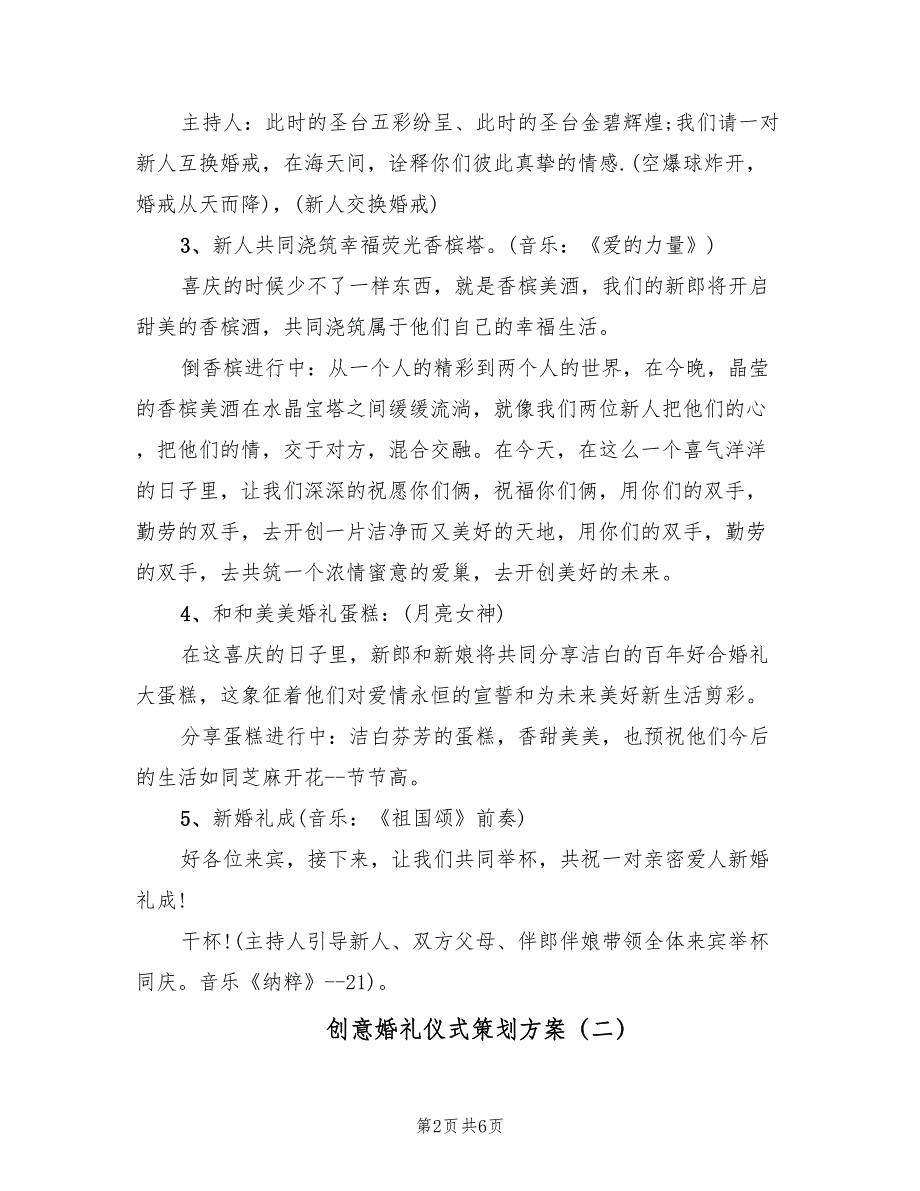 主持人：此时的圣台五彩纷呈、此时的圣台金碧辉煌;我们请一对
新人互换婚戒，在海天间，诠释你们彼此真挚的情感.(空爆球炸开，
婚戒从天而降)，(新人交换婚戒)
3、新人共同浇筑幸福荧光香槟塔。(音乐：《爱的力量》)
喜庆的时候少不了一样东西，就是香槟美酒，我们的新郎将开启
甜美的香槟酒，共同浇筑属于他们自己的幸福生活。
倒香槟进行中：从一个人的精彩到两个人的世界，在今晚，晶莹
的香槟美酒在水晶宝塔之间缓缓流淌，就像我们两位新人把他们的心
，把他们的情，交于对方，混合交融。在今天，在这么一个喜气洋洋
的日子里，让我们深深的祝愿你们俩，祝福你们俩，用你们的双手，
勤劳的双手，去开创一片洁净而又美好的天地，用你们的双手，勤劳
的双手，去共筑一个浓情蜜意的爱巢，去开创美好的未来。
4、和和美美婚礼蛋糕：(月亮女神)
在这喜庆的日子里，新郎和新娘将共同分享洁白的百年好合婚礼
大蛋糕，这象征着他们对爱情永恒的宣誓和为未来美好新生活剪彩。
分享蛋糕进行中：洁白芬芳的蛋糕，香甜美美，也预祝他们今后
的生活如同芝麻开花--节节高。
5、新婚礼成(音乐：《祖国颂》前奏)
好各位来宾，接下来，让我们共同举杯，共祝一对亲密爱人新婚
礼成!
干杯!(主持人引导新人、双方父母、伴郎伴娘带领全体来宾举杯
同庆。音乐《纳粹》--21)。
创意婚礼仪式策划方案（二）
第2页 共6页